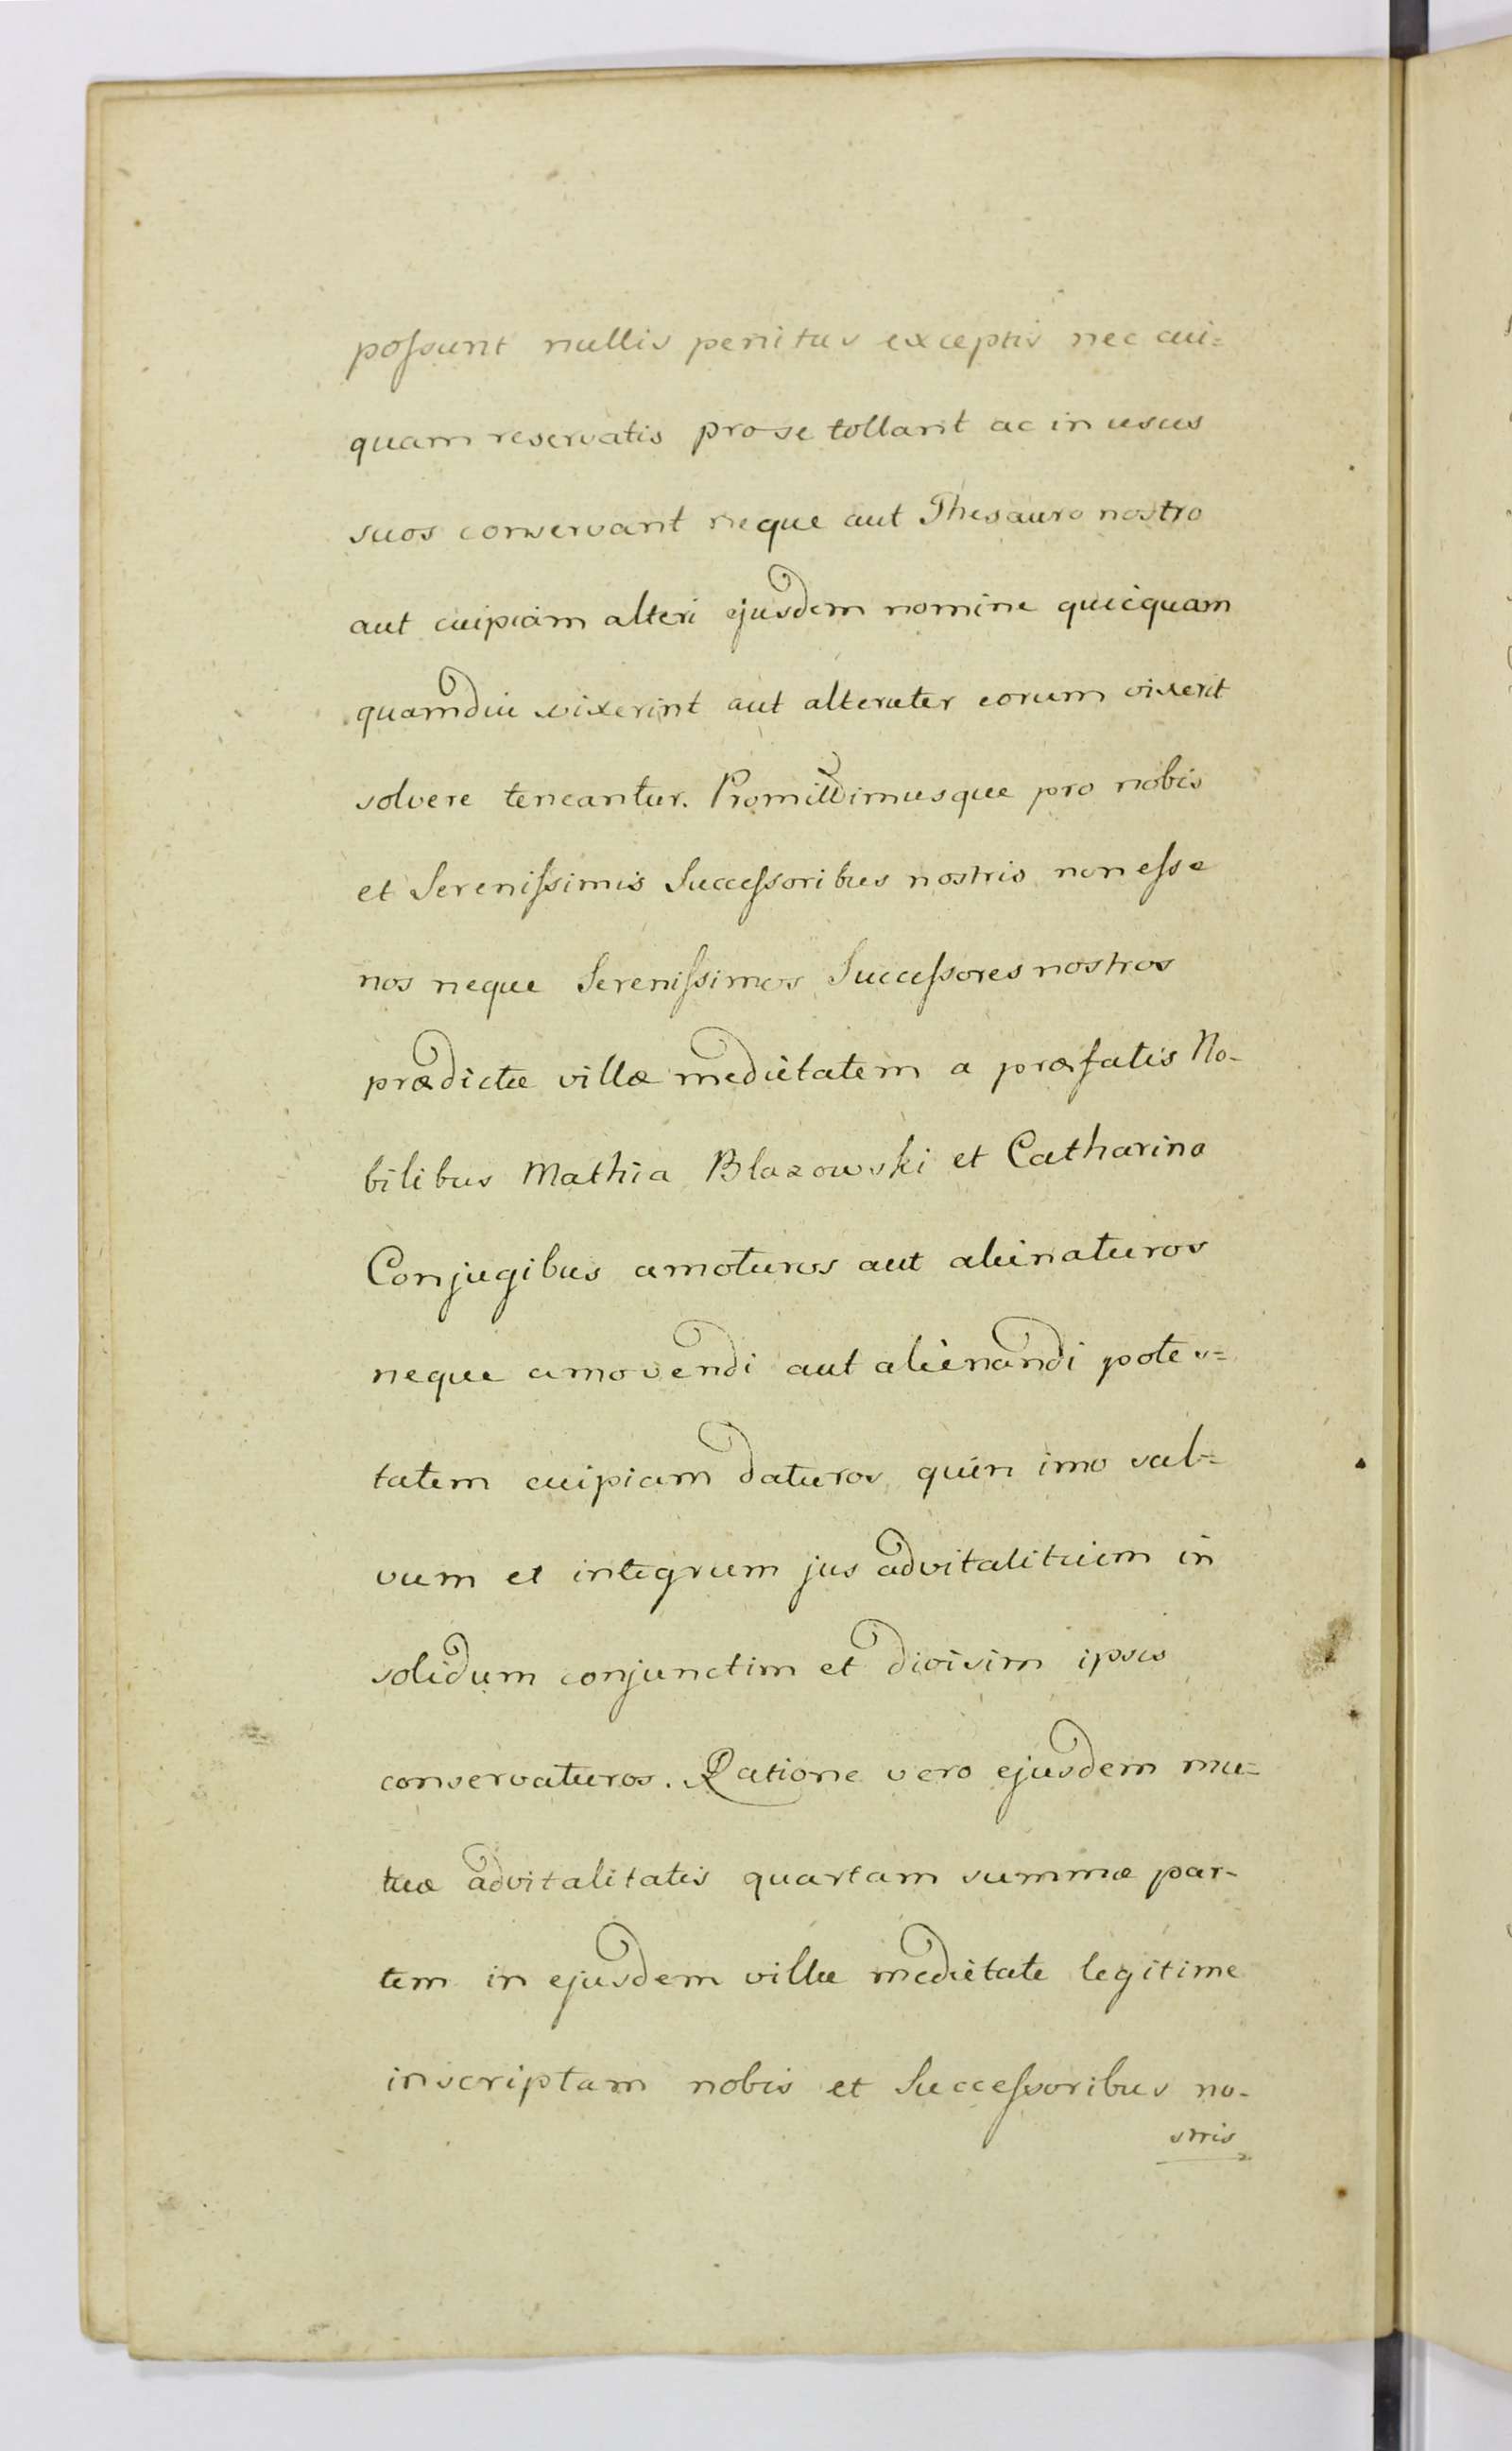 possunt nullis penitus exceptis nec cui=
quam reservatis pro se tollant ac in usus
suos conservant neque aut Thesauro nostro
aut cuipiam alteri ejusdem nomine quicquam
quamdiu vixerint aut alteruter eorum vixerit
solvere teneantur. Promittimusque pro nobis
et Serenissimis Successoribus nostris non esse
nos neque Serenissimos Successores nostros
prædictæ villæ medietatem a præfatis No-
bilibus Mathia Blazowski et Catharina
Conjugibus amoturos aut alienaturos
neque amovendi aut alienandi potes=
tatem cuipiam daturos, quin imo sal=
vum et integrum jus advitalitium in
solidum conjunctim et divisim ipsis
conservaturos. Ratione vero ejusdem mu=
tuæ advitalitatis quartam summæ par-
tem in ejusdem villæ medietate legitime
inscriptam nobis et Successoribus no-
stris